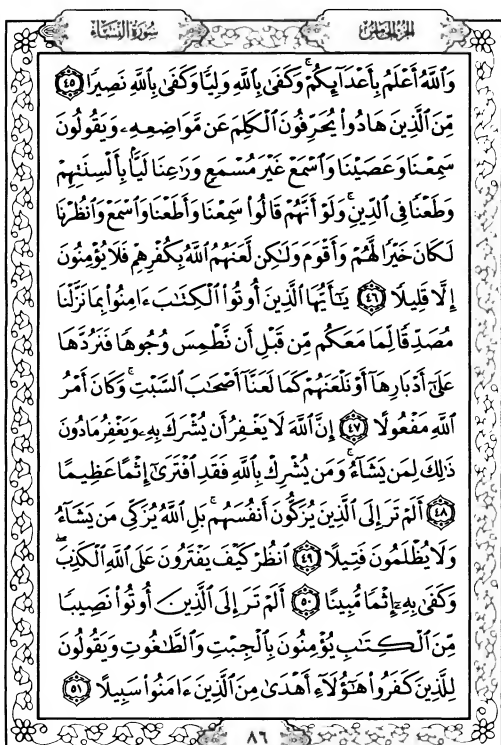 الجزء الخامس سورة النساء
وَاللَّهُ أَعْلَمُ بِأَعْدَآئِكُمْ ۚ وَكَفَىٰ بِاللَّهِ وَلِيًّا وَكَفَىٰ بِاللَّهِ نَصِيرًا ٤٥
مِّنَ الَّذِينَ هَادُوا۟ يُحَرِّفُونَ الْكَلِمَ عَن مَّوَاضِعِهِۦ وَيَقُولُونَ
سَمِعْنَا وَعَصَيْنَا وَاسْمَعْ غَيْرَ مُسْمَعٍ وَرَٰعِنَا لَيًّۢا بِأَلْسِنَتِهِمْ
وَطَعْنًا فِي الدِّينِ ۚ وَلَوْ أَنَّهُمْ قَالُوا۟ سَمِعْنَا وَأَطَعْنَا وَاسْمَعْ وَانظُرْنَا
لَكَانَ خَيْرًا لَّهُمْ وَأَقْوَمَ وَلَٰكِن لَّعَنَهُمُ اللَّهُ بِكُفْرِهِمْ فَلَا يُؤْمِنُونَ
إِلَّا قَلِيلًا ٤٦ يَٰٓأَيُّهَا الَّذِينَ أُوتُوا۟ الْكِتَٰبَ ءَامِنُوا۟ بِمَا نَزَّلْنَا
مُصَدِّقًا لِّمَا مَعَكُم مِّن قَبْلِ أَن نَّطْمِسَ وُجُوهًا فَنَرُدَّهَا
عَلَىٰٓ أَدْبَارِهَآ أَوْ نَلْعَنَهُمْ كَمَا لَعَنَّآ أَصْحَٰبَ السَّبْتِ ۚ وَكَانَ أَمْرُ
اللَّهِ مَفْعُولًا ٤٧ إِنَّ اللَّهَ لَا يَغْفِرُ أَن يُشْرَكَ بِهِۦ وَيَغْفِرُ مَا دُونَ
ذَٰلِكَ لِمَن يَشَآءُ ۚ وَمَن يُشْرِكْ بِاللَّهِ فَقَدِ افْتَرَىٰٓ إِثْمًا عَظِيمًا
٤٨ أَلَمْ تَرَ إِلَى الَّذِينَ يُزَكُّونَ أَنفُسَهُم ۚ بَلِ اللَّهُ يُزَكِّي مَن يَشَآءُ
وَلَا يُظْلَمُونَ فَتِيلًا ٤٩ انظُرْ كَيْفَ يَفْتَرُونَ عَلَى اللَّهِ الْكَذِبَ ۖ
وَكَفَىٰ بِهِۦٓ إِثْمًا مُّبِينًا ٥٠ أَلَمْ تَرَ إِلَى الَّذِينَ أُوتُوا۟ نَصِيبًا
مِّنَ الْكِتَٰبِ يُؤْمِنُونَ بِالْجِبْتِ وَالطَّٰغُوتِ وَيَقُولُونَ
لِلَّذِينَ كَفَرُوا۟ هَٰٓؤُلَآءِ أَهْدَىٰ مِنَ الَّذِينَ ءَامَنُوا۟ سَبِيلًا ٥١
٨٦